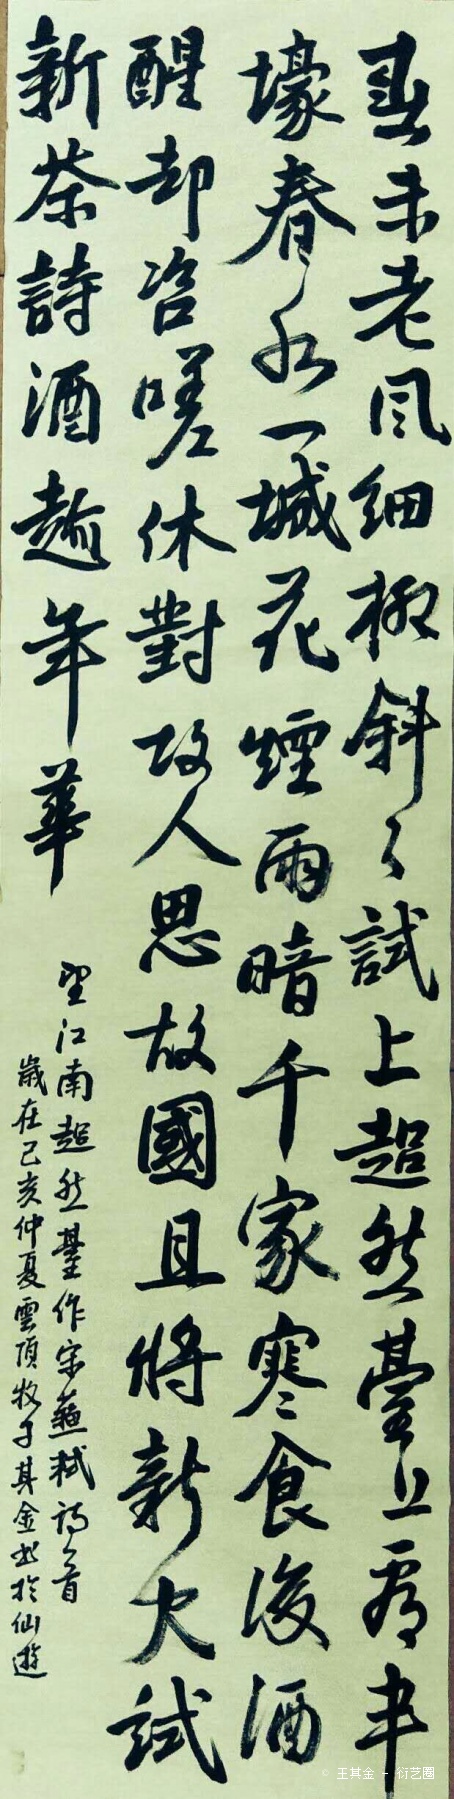 春未老風細柳斜〻試上超然臺上看半
壕春水一城花煙雨暗千家寒食後酒
醒却咨嗟休對故人思故國且將新火試
新茶詩酒趁年華
望江南超然臺作宋蘇軾詞一首
歲在己亥仲夏雲頂牧子其金书於仙遊
© 王其金 - 衍艺圈